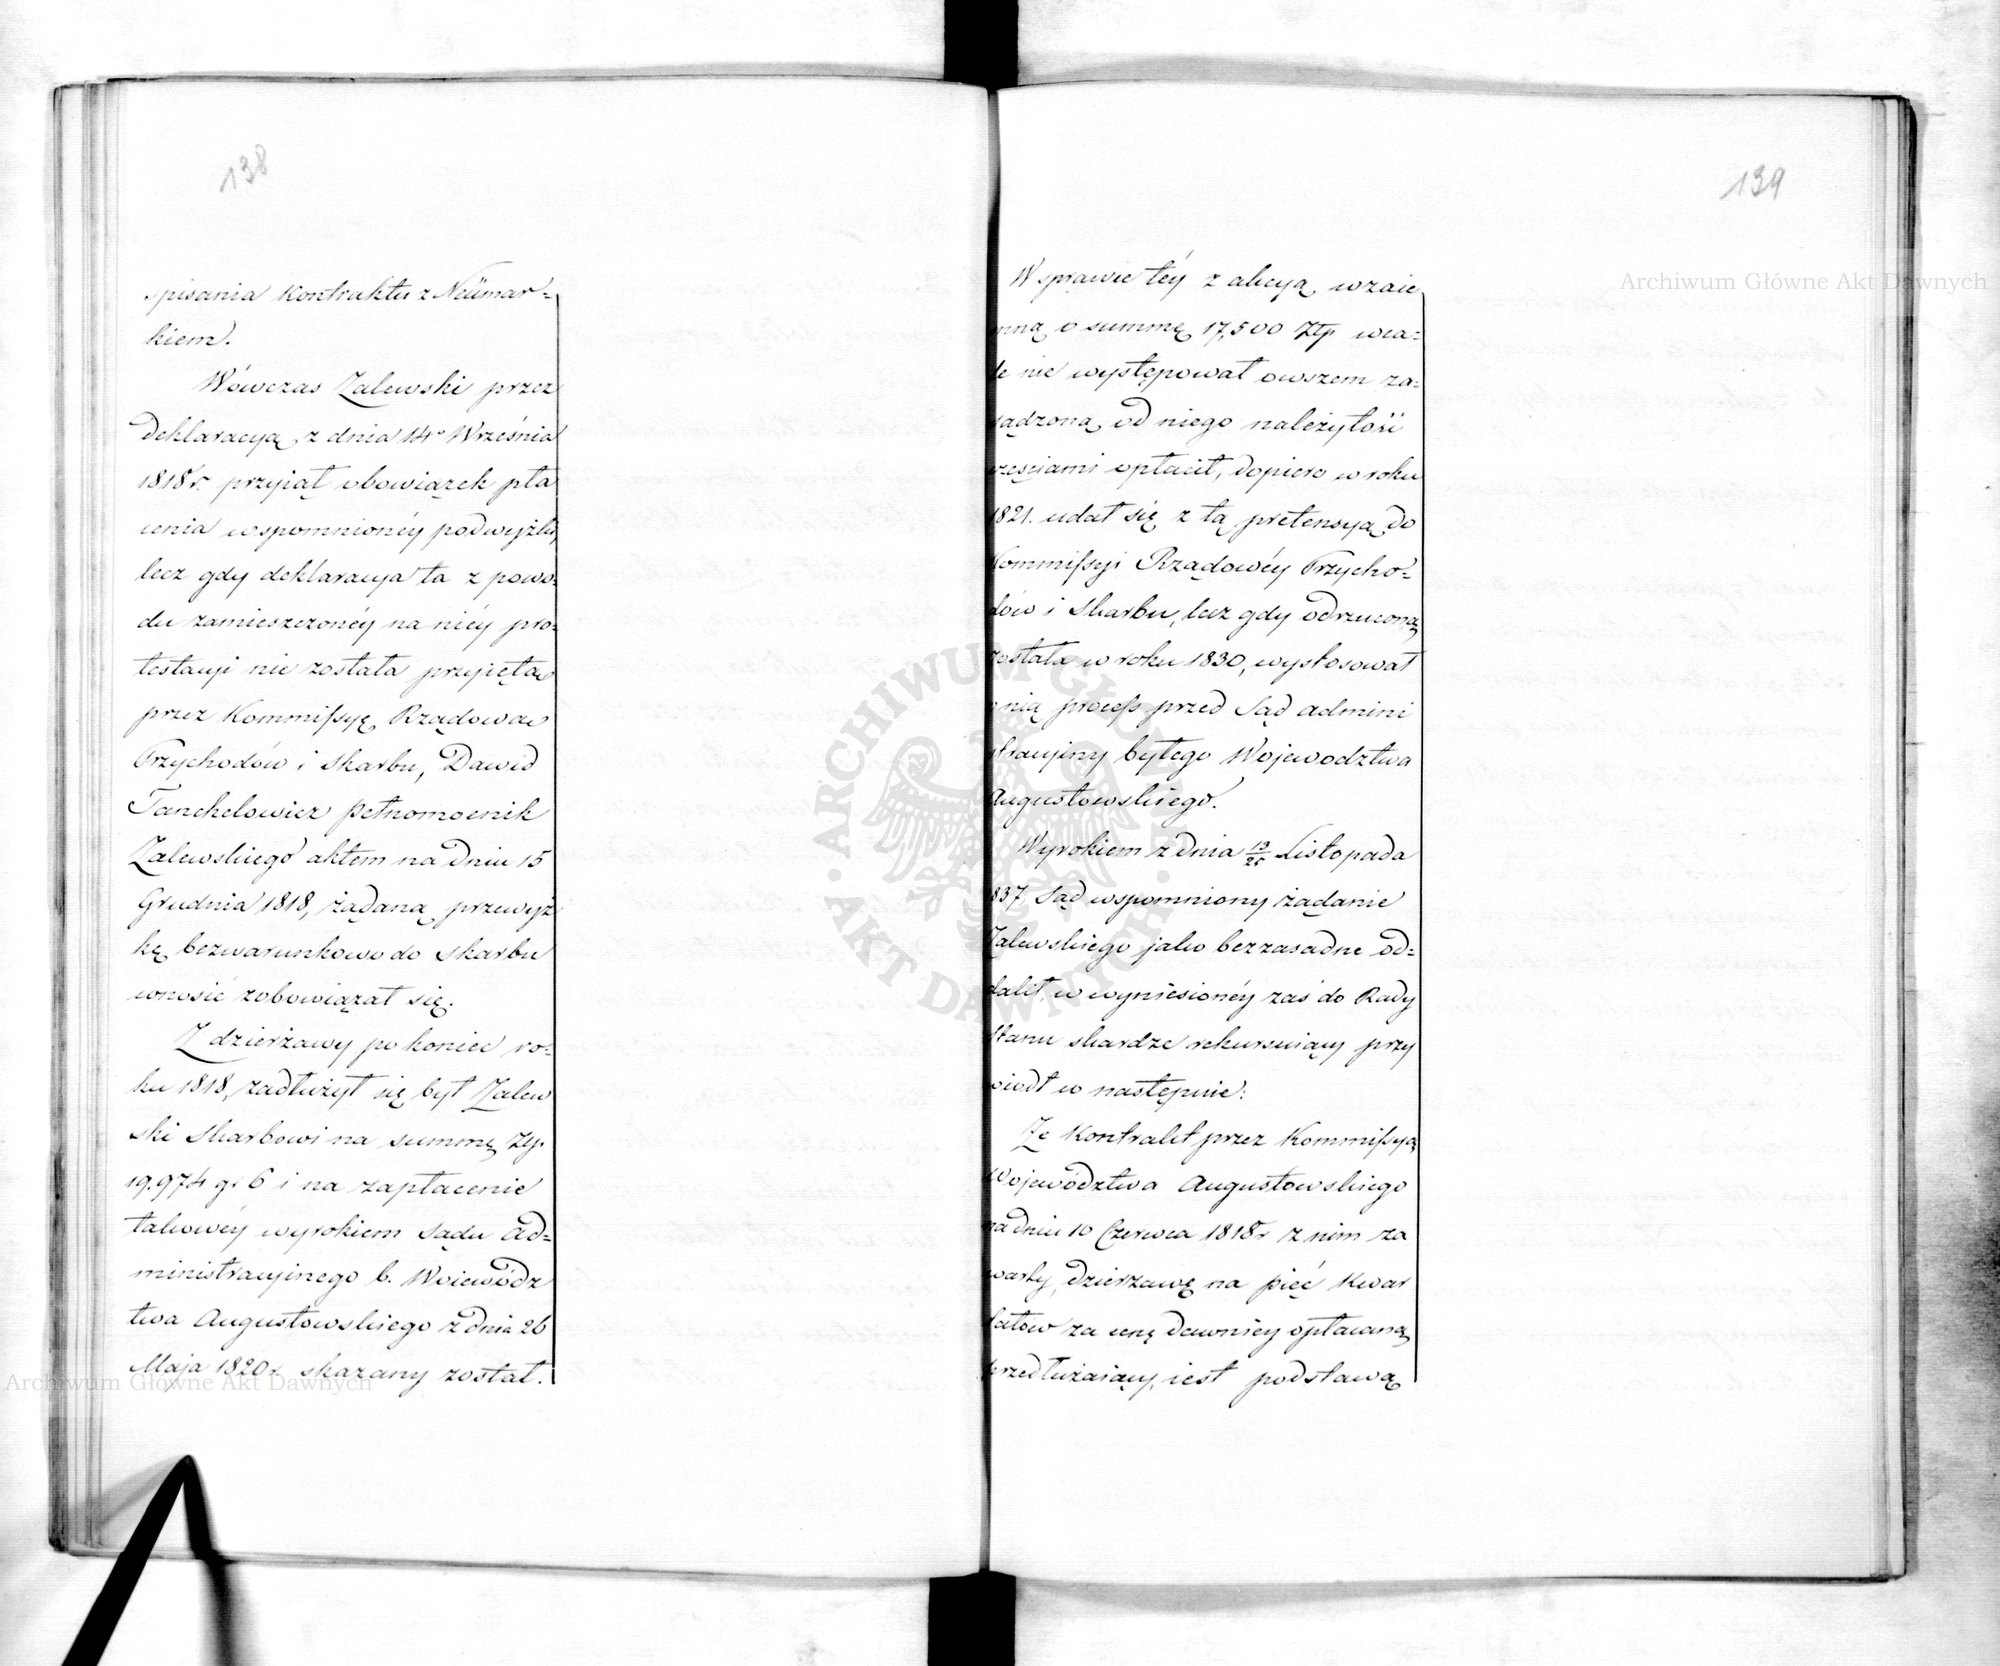 138
spisania Kontraktu z Neümar-
kiem.
Wówczas Zalewski przez
deklaracyą z dnia 14° Września
1818r. przyiął obowiązek pła
cenia wspomnionéy podwyżki,
lecz gdy deklaracya ta z powo-
du zamieszczonéy na niéy pro-
testacyi nie została przyięta
przez Kommissyę Rządowa
Przychodów i Skarbu, Dawid
Tanchelowicz pełnomocnik
Zalewskiego aktem na dniu 15
Grudnia 1818, żądaną przewyż
kę bezwarunkowo do Skarbu
wnosić zobowiązał się.
Z dzierżawy po koniec ro-
ku 1818, zadłużył się był Zalew
ski Skarbowi na summę Złp.
19.974 gr 6 i na zapłacenie
takowéy wyrokiem Sądu Ad-
ministracyinego b. Woiewódz
twa Augustowskiego z dnia 26
Maja 1820r. skazany został.
139
W sprawie téy z akcyą wzaie
mną o summę 17,500 Złp wca-
le nie występował owszem za-
sądzoną od niego należytość
częściami opłacił, dopiero w roku
1821. udał się z tą pretensyą do
Kommissyi Rządowéy Przycho-
dów i Skarbu, lecz gdy odrzuconą
została w roku 1830, wystosował
o nią process przed Sąd admini
stracyiny byłego Województwa
Augustowskiego.
Wyrokiem z dnia 13/25 Listopada
837, Sąd wspomniony żądanie
Zalewskiego jako bezzasadne od-
dalił, w wyniesionéy zaś do Rady
Stanu skardze rekursuiący przy
wiódł w następnie:
Że Kontrakt przez Kommissyą
Województwa Augustowskiego
na dniu 10 Czerwca 1818r z nim za
warty, dzierżawę na pięć Kwar
tałów za cenę dawniey opłacaną
przedłużaiący, iest podstawą
Archiwum Główne Akt Dawnych
ARCHIWUM GŁÓWNE · AKT DAWNYCH ·
Archiwum Główne Akt Dawnych